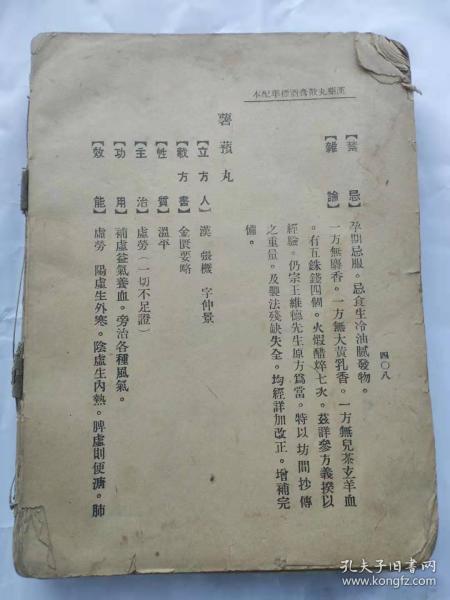 丸藥丸散膏酒標準配本
四〇八
【禁忌】孕期忌服。忌食生冷油膩發物。
【雜論】一方無麝香。一方無大黃乳香。一方無兒茶玄羊血
。有五銖錢四個。火煅醋焠七次。茲詳參方義揆以
經驗。仍宗王維德先生原方爲當。特以坊間抄傳
之重量。及製法殘缺失全。均經詳加改正。增補完
備。
薯蕷丸
【立方人】漢 張機 字仲景
【載方書】金匱要略
【性質】溫平
【主治】虛勞（一切不足證）
【功用】補虛益氣養血。旁治各種風氣。
【效能】虛勞 陽虛生外寒。陰虛生內熱。脾虛則便溏。肺
孔夫子旧书网
www.kongfz.com